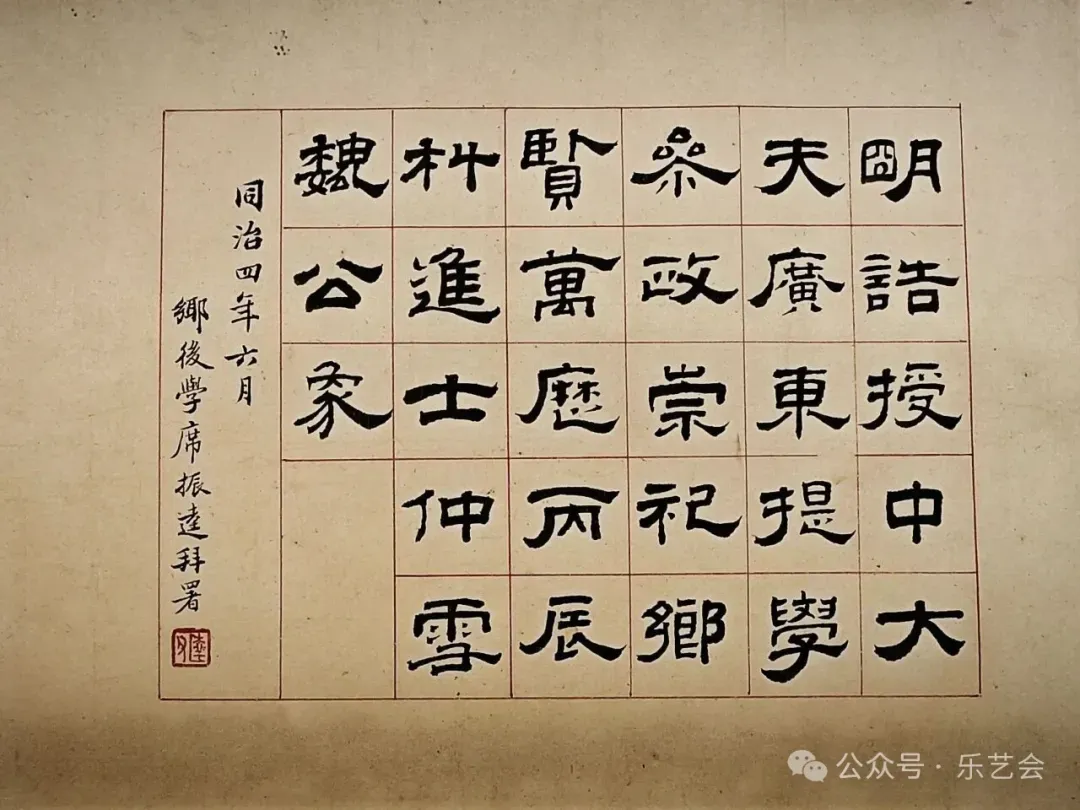 明誥授中大
夫廣東提學
叅政崇祀鄉
賢萬歷丙辰
科進士仲雪
魏公象
同治四年六月
鄉後學席振逵拜署
公众号·乐艺会